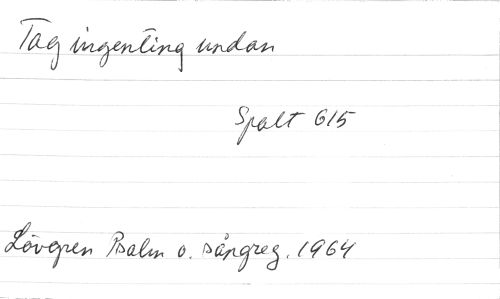 Tag ingenting undan
Spalt 615
Lövgren Psalm o. sångreg. 1964